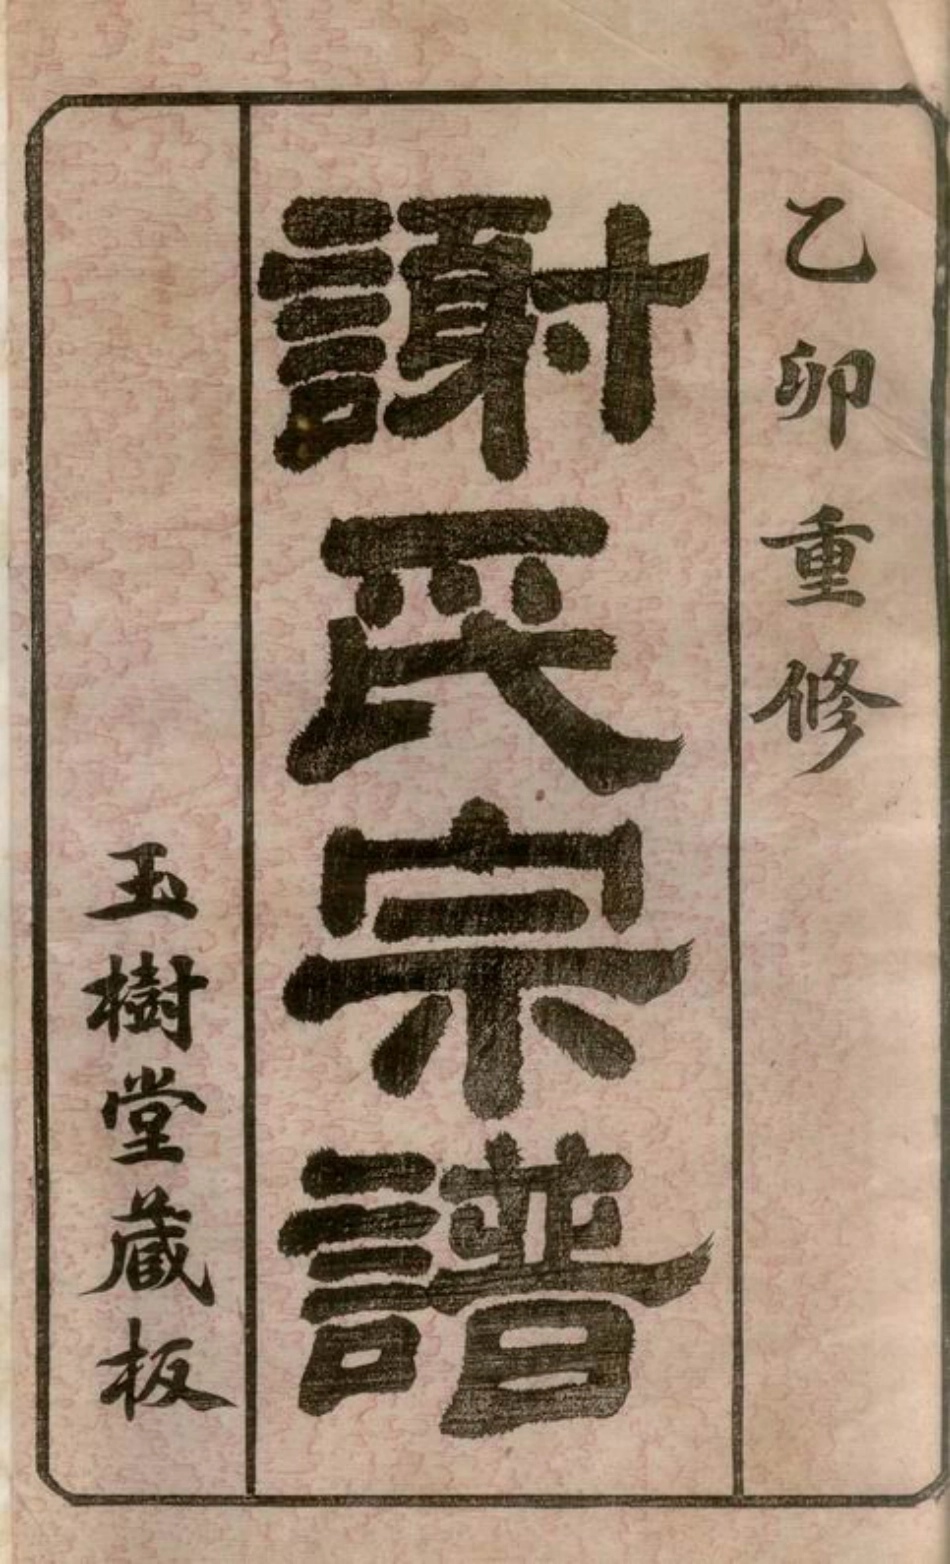 乙卯重修
謝氏宗譜
玉樹堂藏板